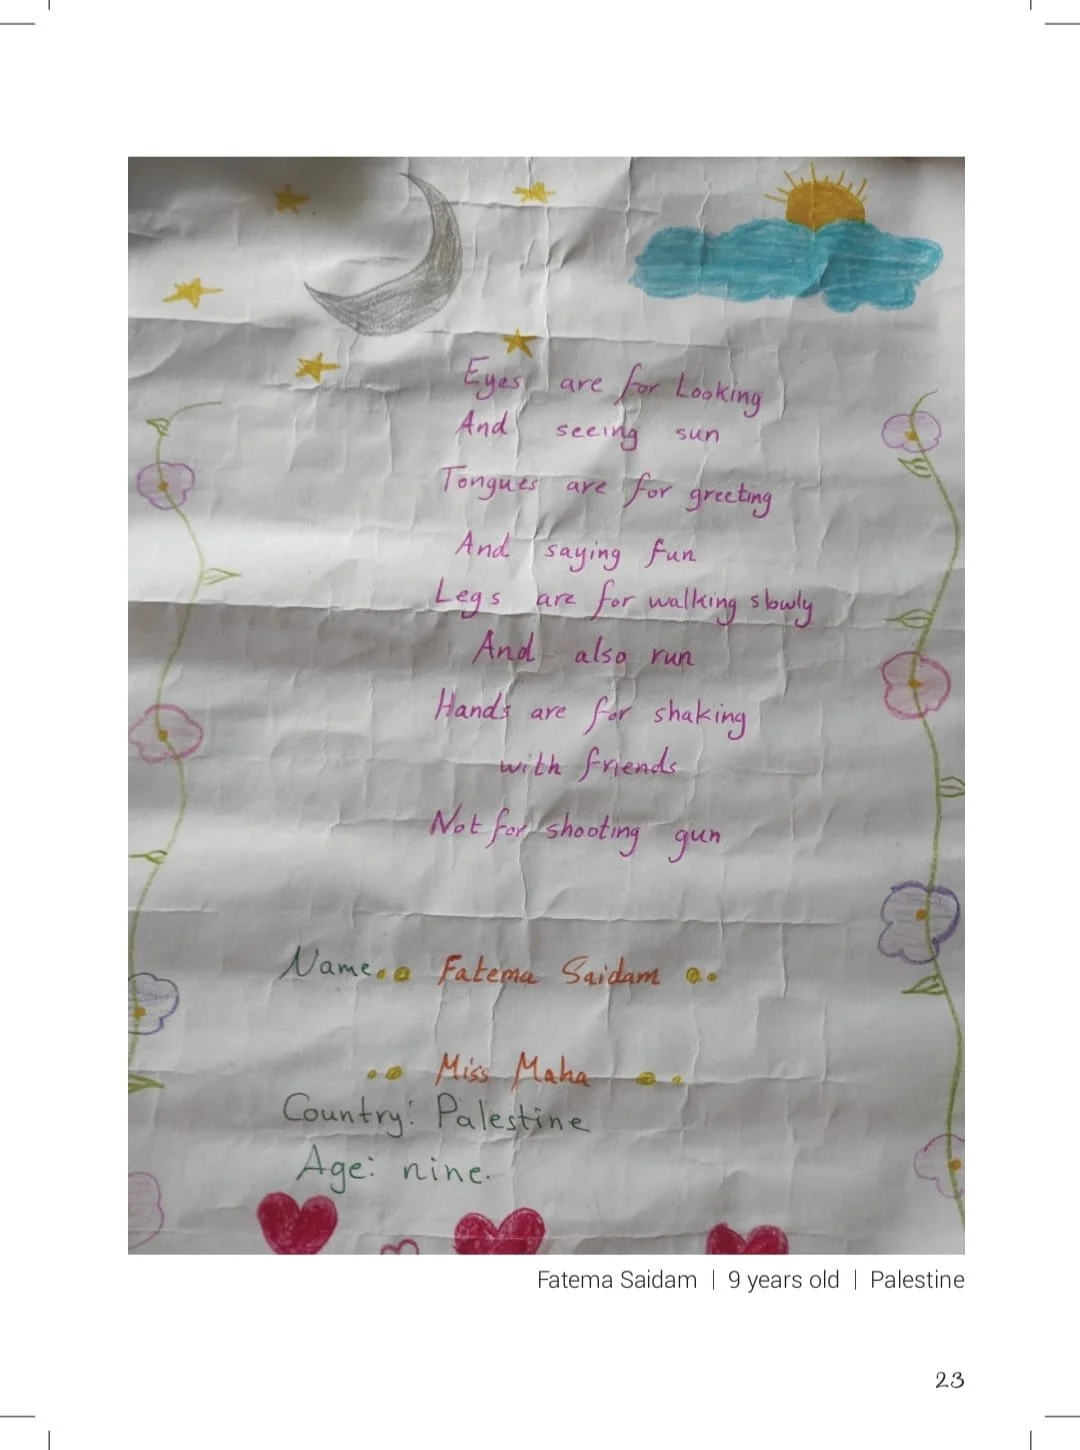 Eyes are for Looking
And seeing sun
Tongues are for greeting
And saying fun
Legs are for walking slowly
And also run
Hands are for shaking
with friends
Not for shooting gun
Name.. Fatema Saidam ..
.. Miss Maha ..
Country: Palestine
Age: nine.
Fatema Saidam | 9 years old | Palestine
23